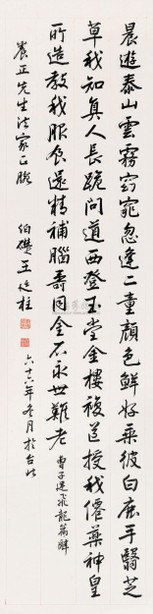 晨遊泰山雲霧窈窕忽逢二童顏色鮮好乘彼白鹿手翳芝
草我知真人長跪問道西登玉堂金樓複道授我僊藥神皇
所造教我服食還精補腦壽同金石永世難老
曹子建飛龍篇
養正先生法家正腕
伯礎王廷柱
六十六年冬月於台北